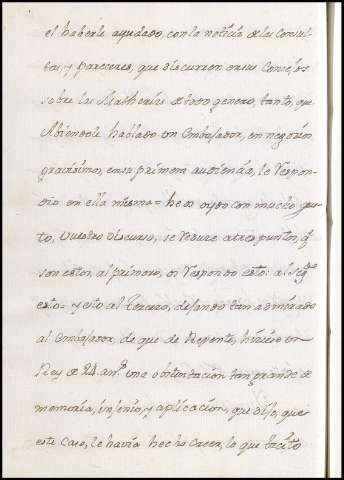 el haberle ayudado, con la noticia de las Consul-
tas, y pareceres, que discurren en sus Consejos
sobre las Matherias de todo genero, tanto, que
Abiendole hablado un Embajador, en negocios
gravissimos, en su primera audiencia, le Respon-
dio en ella misma = he os oydo con mucho gus-
to, Vuestro discurso, se Reduze a tres puntos, q
son estos, al primero, os Respondo esto: al Segdo
esto = y esto al Tercero, dejando tan admirado
al Embajador, de que de Repente, hiciese un
Rey de 24 ans. una obstentacion tan grande de
memoria, injenio, y aplicacion, que dijo, que
este Caso, le havia hecho Creer, lo que Tacito